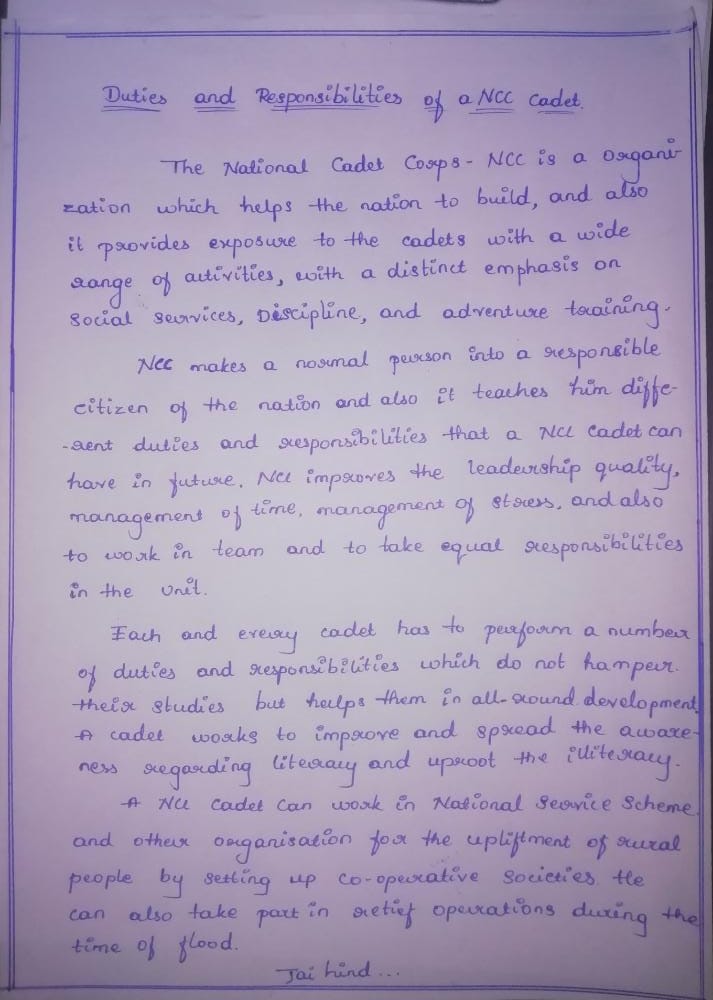 Duties and Responsibilities of a NCC Cadet.
The National Cadet Corps - NCC is a organi-
zation which helps the nation to build, and also
it provides exposure to the cadets with a wide
range of activities, with a distinct emphasis on
Social Services, Discipline, and adventure training.
NCC makes a normal person into a responsible
citizen of the nation and also it teaches him diffe-
-rent duties and responsibilities that a NCC Cadet can
have in future. NCC improves the leadership quality,
management of time, management of stress, and also
to work in team and to take equal responsibilities
in the Unit.
Each and every cadet has to perform a number
of duties and responsibilities which do not hamper
their studies but helps them in all-round development.
A cadet works to improve and spread the aware-
ness regarding literacy and uproot the illiteracy.
A NCC Cadet can work in National Service Scheme,
and other organisation for the upliftment of rural
people by setting up co-operative Societies He
can also take part in relief operations during the
time of flood.
Jai hind...